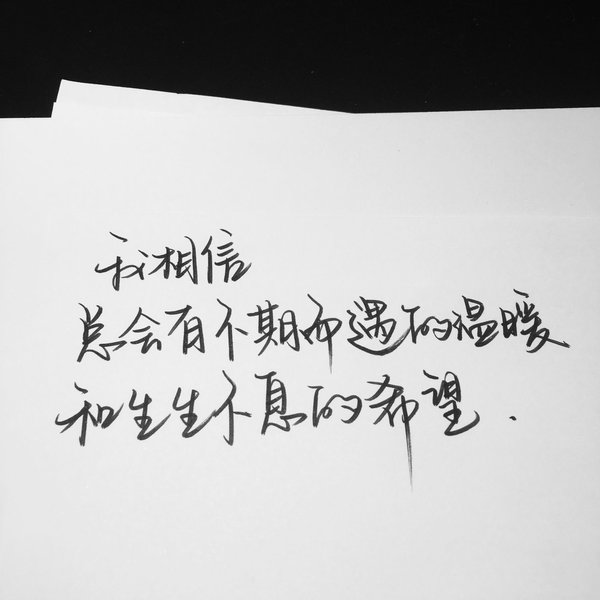 我相信
总会有不期而遇的温暖
和生生不息的希望.